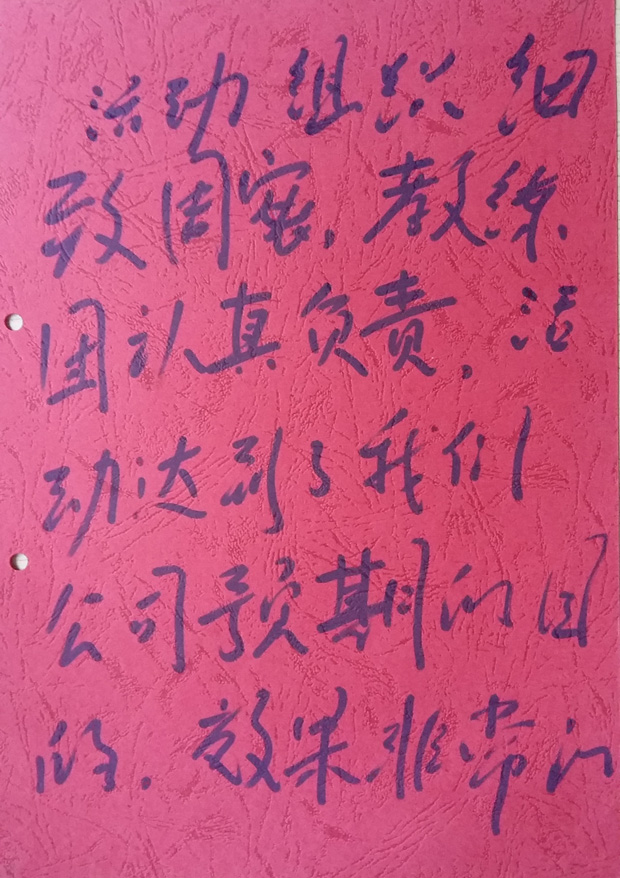 活动组织细
致周密，教练
团认真负责，活
动达到了我们
公司预期的目
的，效果非常的